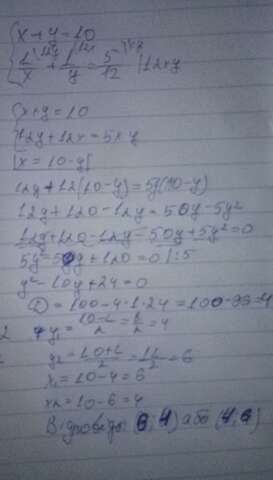 x+y=10
1/x + 1/y = 5/12 |12xy
x+y=10
12y+12x=5xy
x=10-y
12y+12(10-y)=5y(10-y)
12y+120-12y=50y-5y²
12y+120-12y-50y+5y²=0
5y²-50y+120=0 |:5
y²-10y+24=0
D=100-4·1·24=100-96=4
y₁=10-2/2=8/2=4
y₂=10+2/2=12/2=6
x₁=10-4=6
x₂=10-6=4
Відповідь (6,4) або (4,6)